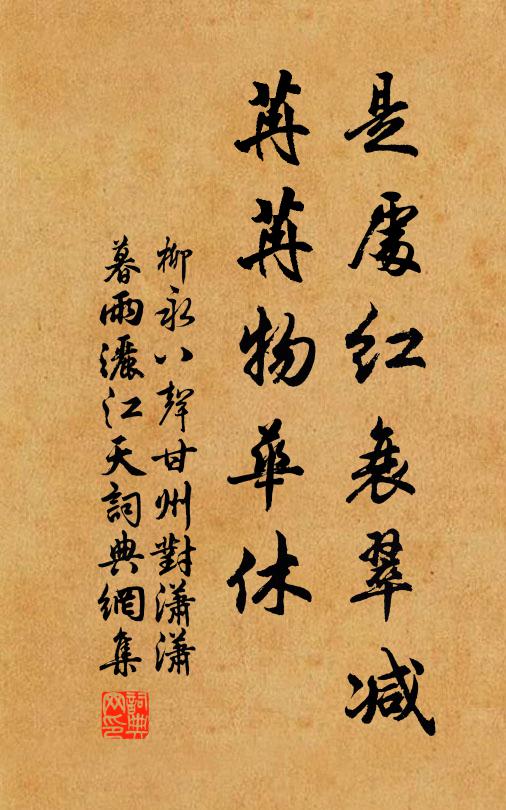 是處红衰翠减
苒苒物華休
柳永八聲甘州對瀟瀟
暮雨灑江天詞典網集
詞典
网印